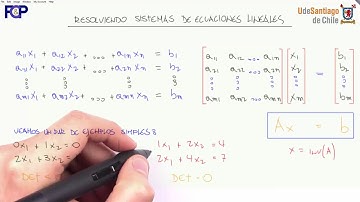 FQP
RESOLVIENDO SISTEMAS DE ECUACIONES LINEALES
UdeSantiago
de Chile
a11x1 + a12x2 + ... + a1nxn = b1
a21x1 + a22x2 + ... + a2nxn = b2
am1x1 + am2x2 + ... + amnxn = bm
a11 a12 ... a1n
a21 a22 ... a2n
am1 am2 ... amn
x1
x2
b1
b2
Ax = b
x = inv(A)
VEAMOS UN PAR DE EJEMPLOS SIMPLES
0x1 + 1x2 = 0
2x1 + 3x2
DET
1x1 + 2x2 = 4
2x1 + 4x2 = 7
DET = 0